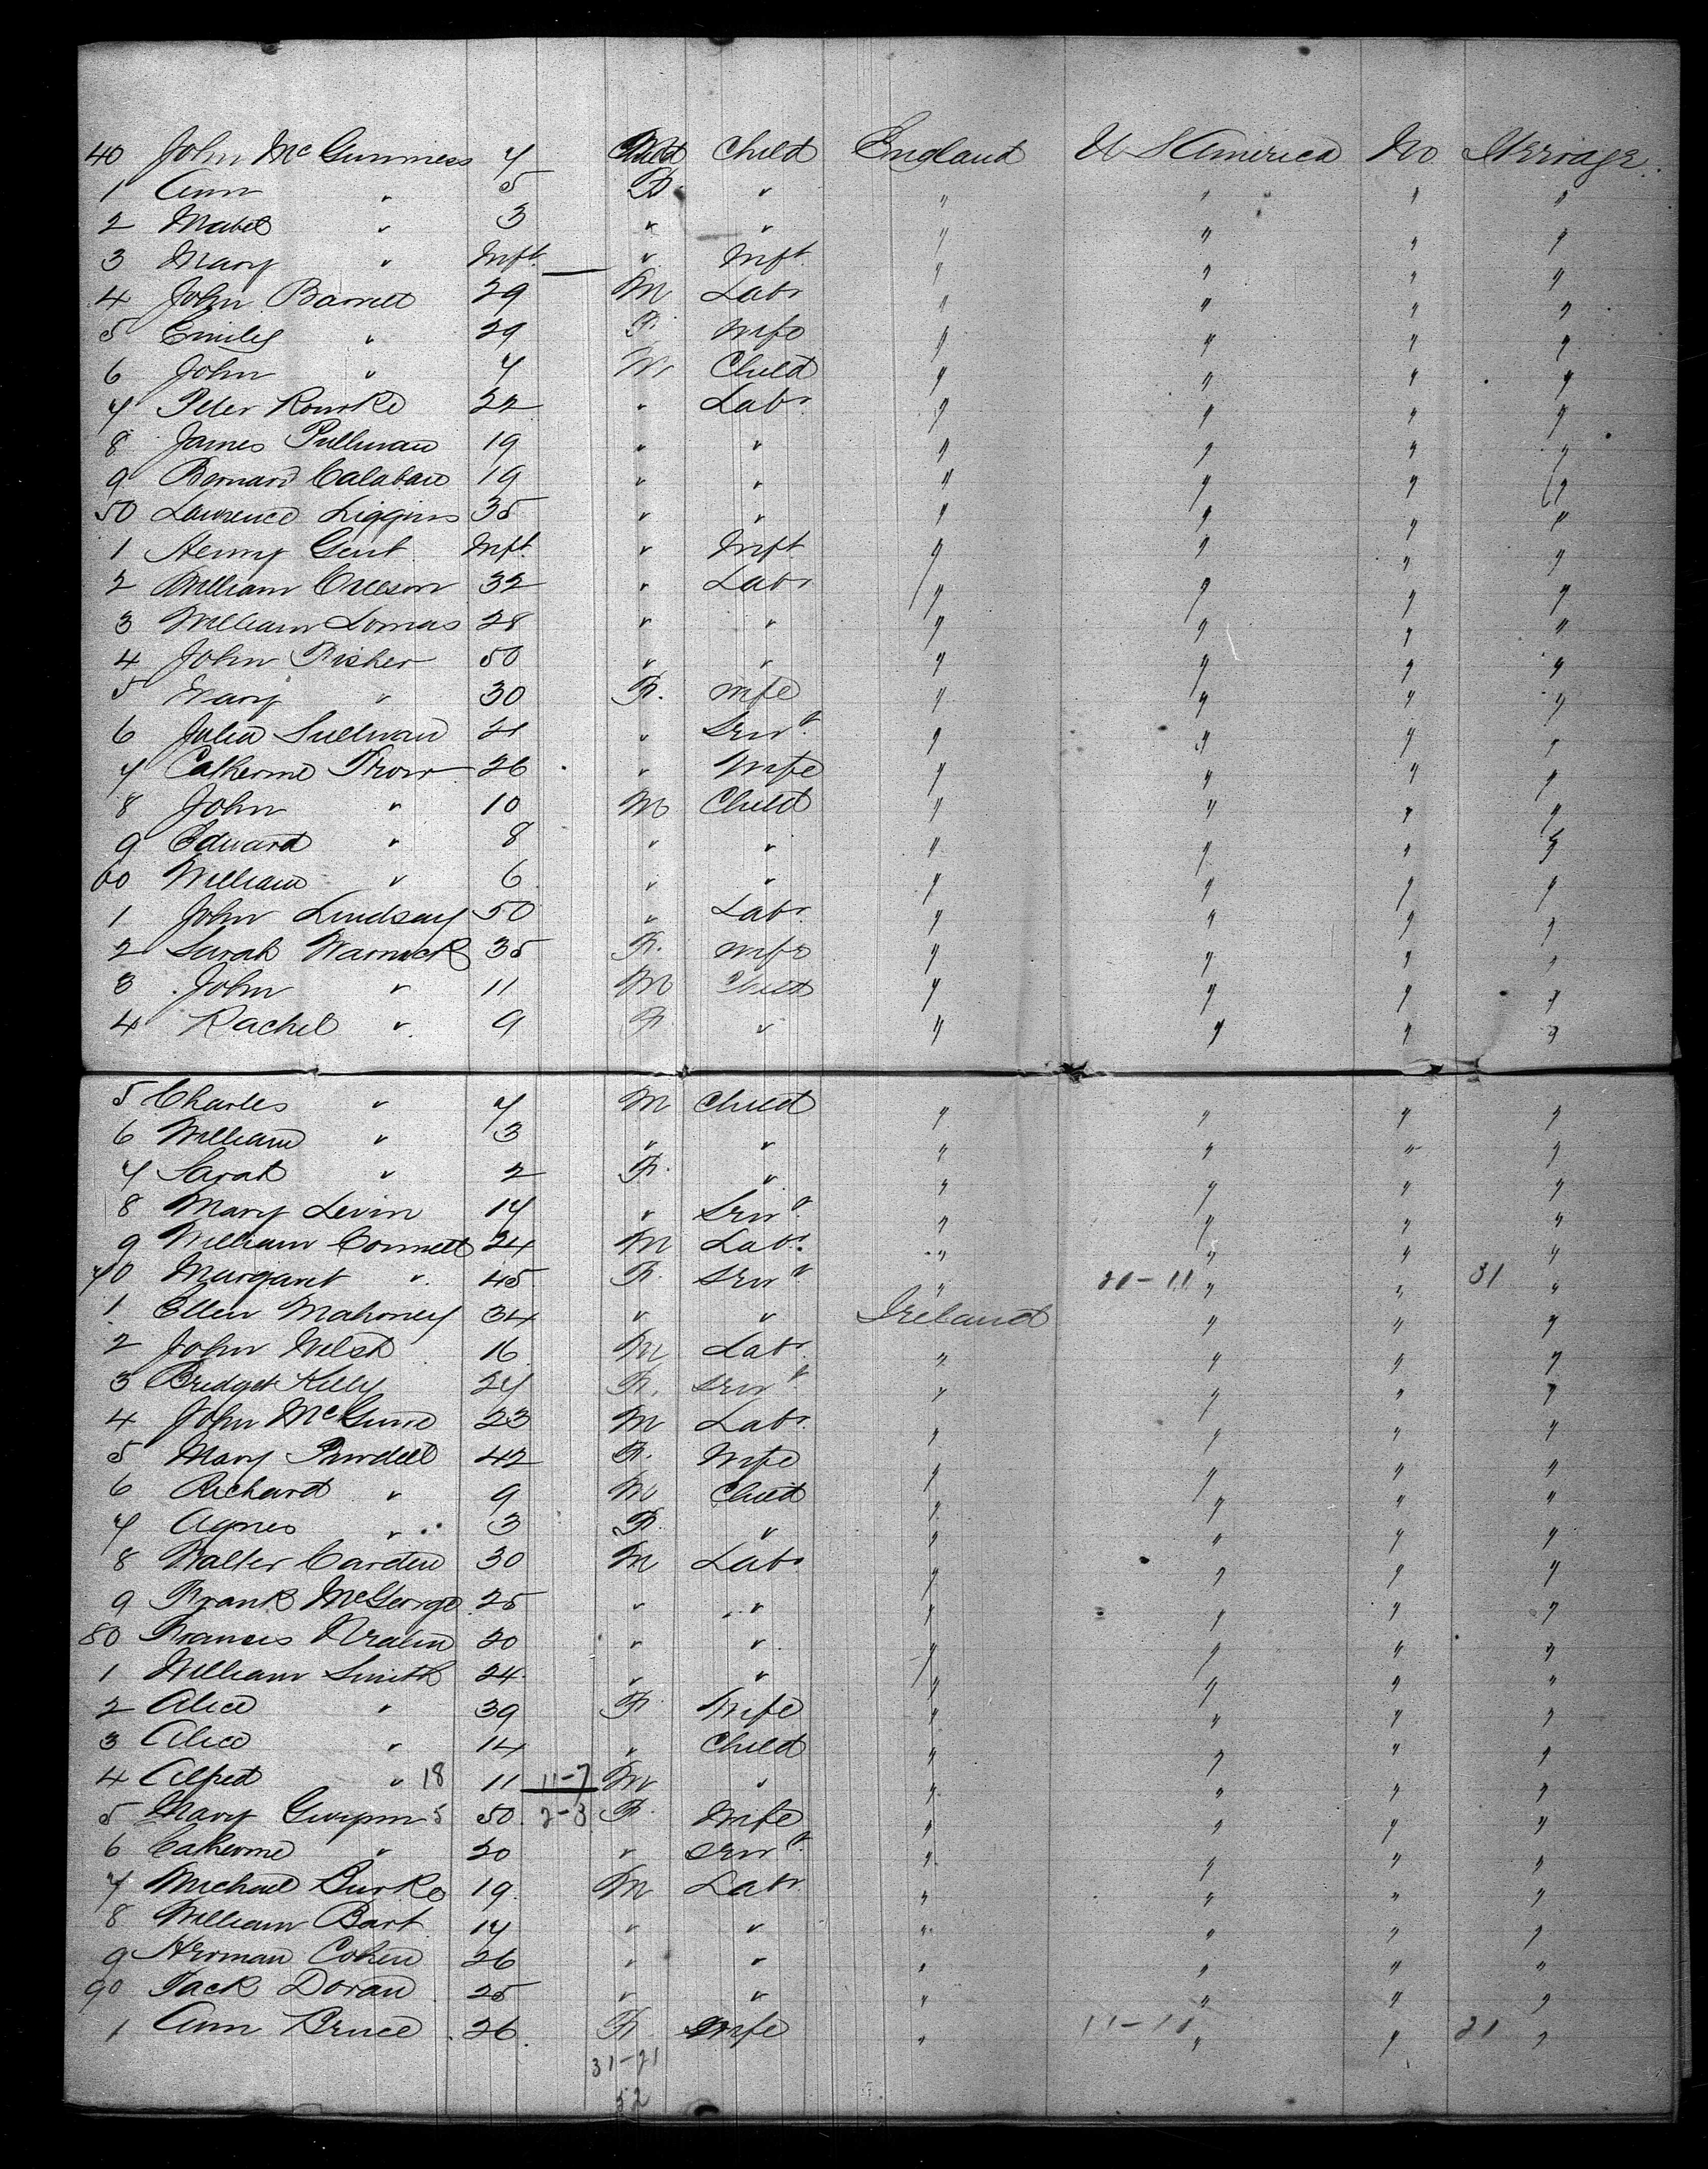 40 John McGunness 7 Child Child England U S America No Steerage
1 Ann " 5 F " " " " "
2 Mabel " 3 " " " " " "
3 Mary " Inft " Inft " " " "
4 John Barrett 29 M Labr " " " "
5 Emily " 29 F Wife " " " "
6 John " 7 M Child " " " "
7 Peter Rourke 22 " Labr " " " "
8 James Pullman 19 " " " " " "
9 Bernard Calaban 19 " " " " " "
50 Lawrence Liggins 35 " " " " " "
1 Henry Gent Inft " Inft " " " "
2 William 32 " Labr " " " "
3 William Lomas 28 " " " " " "
4 John Fisher 50 " " " " " "
5 Mary " 30 F. Wife " " " "
6 Julia Sullivan 21 " Servt " " " "
7 Catherine 26 " Wife " " " "
8 John " 10 M Child " " " "
9 Edward " 8 " " " " " "
60 William " 6 " " " " " "
1 John Lindsay 50 " Labr " " " "
2 Sarah Warnock 35 F. Wife " " " "
3 John " 11 M Child " " " "
4 Rachel " 9 F " " " " "
5 Charles " 7 M Child " " " "
6 William " 3 " " " " " "
7 Sarah " 2 F. " " " " "
8 Mary Levin 17 " Servt " " " "
9 William Connett 24 M Labr " " " "
70 Margaret " 45 F. Servt " 21-11 " " 31 "
1 Ellen Mahoney 34 " " Ireland " " "
2 John Welsh 16 M Labr " " " "
3 Bridget Kelly 27 F. Servt " " " "
4 John McGuire 23 M Labr " " " "
5 Mary Purdell 42 F. Wife " " " "
6 Richard " 9 M Child " " " "
7 Agnes " 3 F. " " " " "
8 Walter Carden 30 M Labr " " " "
9 Frank McGeorge 25 " " " " " "
80 Francis 20 " " " " " "
1 William Smith 24 " " " " " "
2 Alice " 39 F Wife " " " "
3 Alice " 14 " Child " " " "
4 Alfred " 18 11 11-7 M " " " " "
5 Mary 5 50 2-3 F. Wife " " " "
6 Catherine " 20 " Servt " " " "
7 Michael Burke 19 M Labr " " " "
8 William Bart 17 " " " " " "
9 Herman Cohen 26 " " " " " "
90 Jack Doran 25 " " " " " "
1 Ann Bruce 26 F Wife " 11-11 " " 21 "
31-21
52